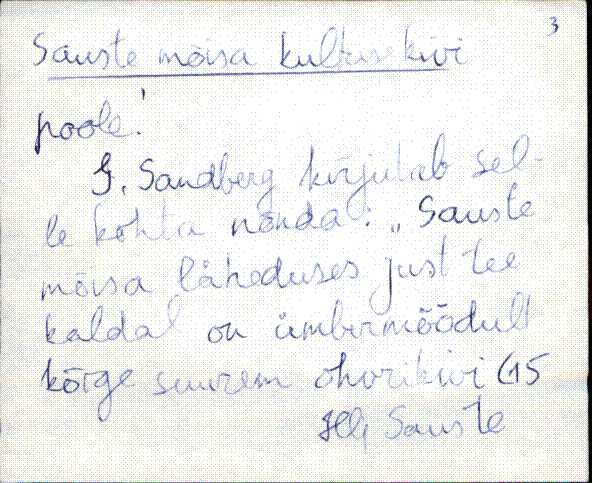 3
Sauste mõisa kultusekivi
poole!
G. Sandberg kirjutab sel-
le kohta nõnda: „Sauste
mõisa läheduses just tee
kaldal on ümbermõõdult
kõige suurem ohvrikivi (15
Sauste